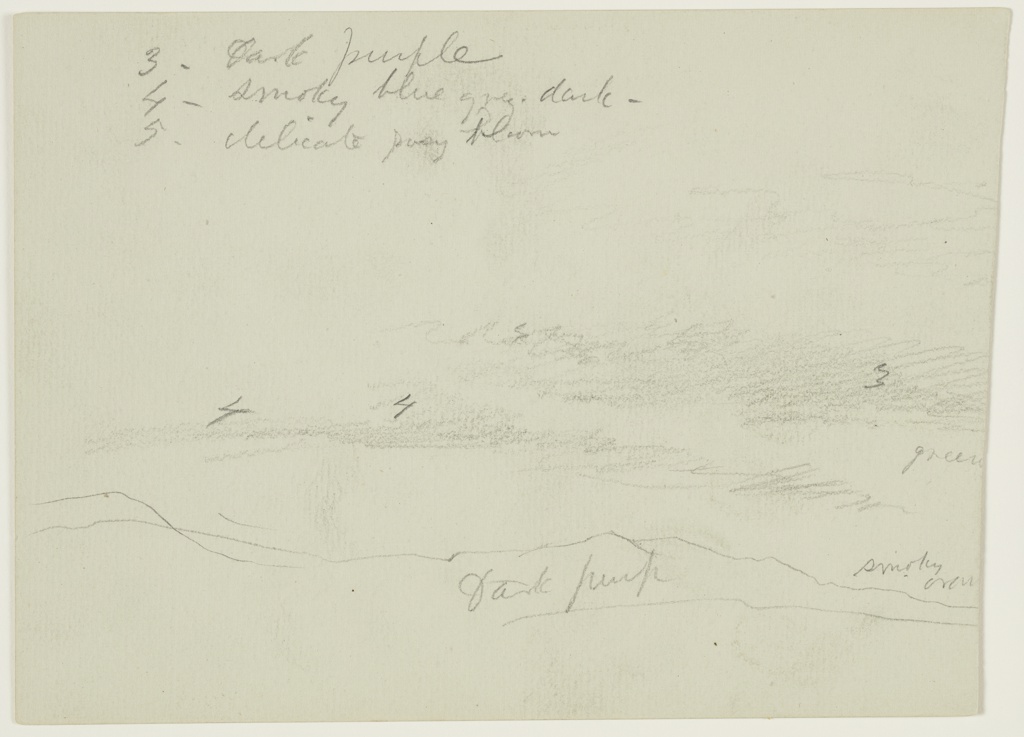 3 - Dark purple
4 - smoky blue grey. dark -
5. delicate
5
3
4 4
green
smoky
Dark purp